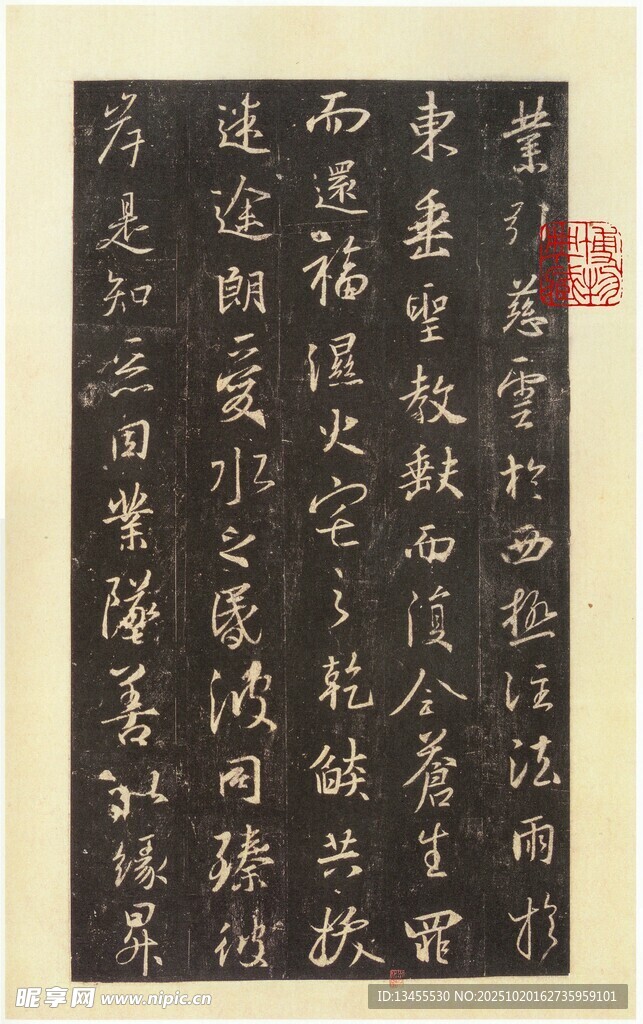 業引慈雲於西極注法雨於
東垂聖教缺而復全蒼生罪
而還福濕火宅之乾燄共拔
迷途朗愛水之昏波同臻彼
岸是知惡因業墜善以緣昇
昵享网 www.nipic.cn
ID:13455530 NO:20251020162735959101